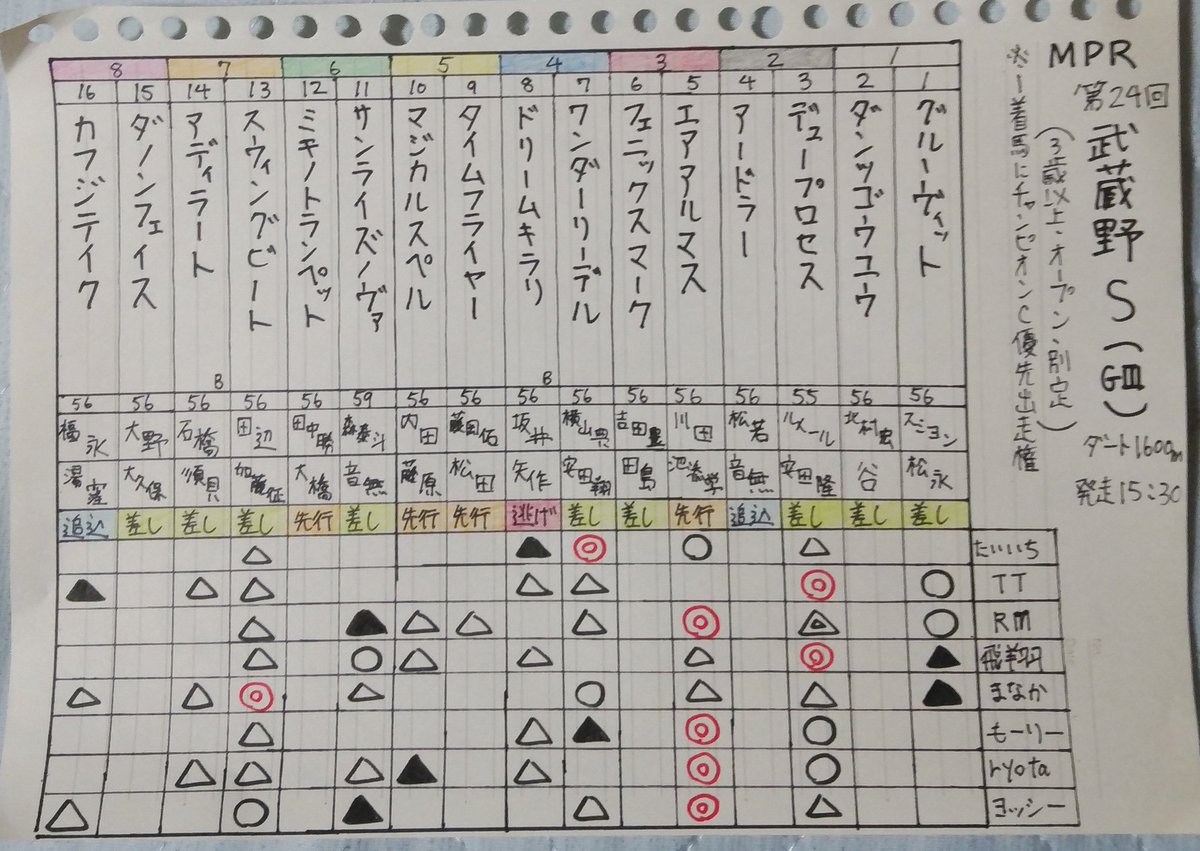 MPR
第24回
武蔵野S(GⅢ)
(3歳以上・オープン・別定)
※一着馬にチャンピオンC優先出走権
ダート1600m
発走15:30
8 7 6 5 4 3 2 1
16 15 14 13 12 11 10 9 8 7 6 5 4 3 2 1
グルーヴィット
ダンツゴウユウ
デュープロセス
アードラー
エアアルマス
フェニックスマーク
ワンダーリーデル
ドリームキラリ
B
タイムフライヤー
マジカルスペル
サンライズノヴァ
ミキノトランペット
スウィングビート
アディラート
B
ダノンフェイス
カフジテイク
56 56 56 56 56 59 56 56 56 56 56 56 56 55 56 56
福永 大野 石橋 田辺 田中勝 森泰斗 内田 藤岡佑 坂井 横山典 吉田豊 川田 松若 ルメール 北村宏 スミヨン
湯窪 大久保 須貝 加藤征 大橋 音無 藤原 松田 矢作 安田翔 田島 池添学 音無 安田隆 谷 松永
追込 差し 差し 差し 先行 差し 先行 先行 逃げ 差し 差し 先行 追込 差し 差し 差し
△ ▲ ◎ ○ △ たいいち
▲ △ △ △ △ ◎ ○ TT
△ ▲ △ △ △ ◎ △ ○ RM
△ ○ △ △ △ ◎ ▲ 飛翔羽
△ △ ◎ △ ○ △ △ ▲ まなか
△ △ ▲ ◎ ○ もーりー
△ △ △ ▲ △ ◎ ○ ryota
△ ○ ▲ △ ◎ △ ヨッシー